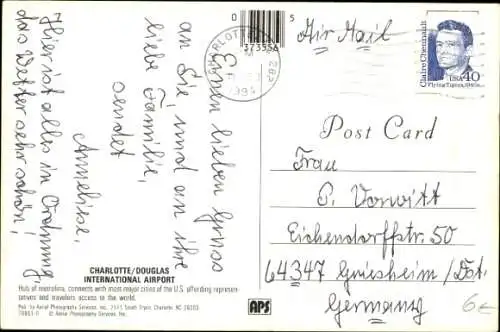 Einen lieben Gruss
an Sie und an ihre
liebe Familie,
sendet
Anneliese.
Hier ist alles in Ordnung,
das Wetter sehr schön!
CHARLOTTE/DOUGLAS
INTERNATIONAL AIRPORT
Hub of metrolina, connects with most major cities of the U.S. affording represen-
tatives and travelers access to the world.
Pub. by Aerial Photography Services, Inc. 2511 South Tryon, Charlotte NC 28203
© Aerial Photography Services, Inc.
APS
0 5
373556
CHARLOTTE
282
Air Mail
Claire Chennault
USA 40
Flying Tigers,
Post Card
Frau
P. Vorwitt
Eichendorffstr. 50
64347 Griesheim / Dst.
Germany
6€